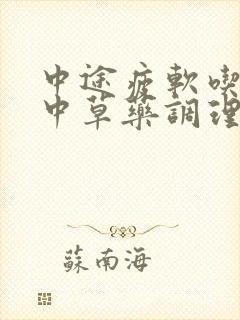 中途疲軟喫
中草藥調理
蘇南海